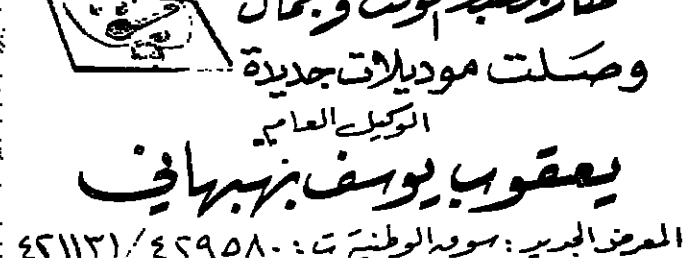 وصلت موديلات جديدة
الوكيل العام
يعقوب يوسف بهبهاني
المعرض الجديد : سوق الوطنية ت : ٤٢٩٥٨٠ / ٤٢١١٣١